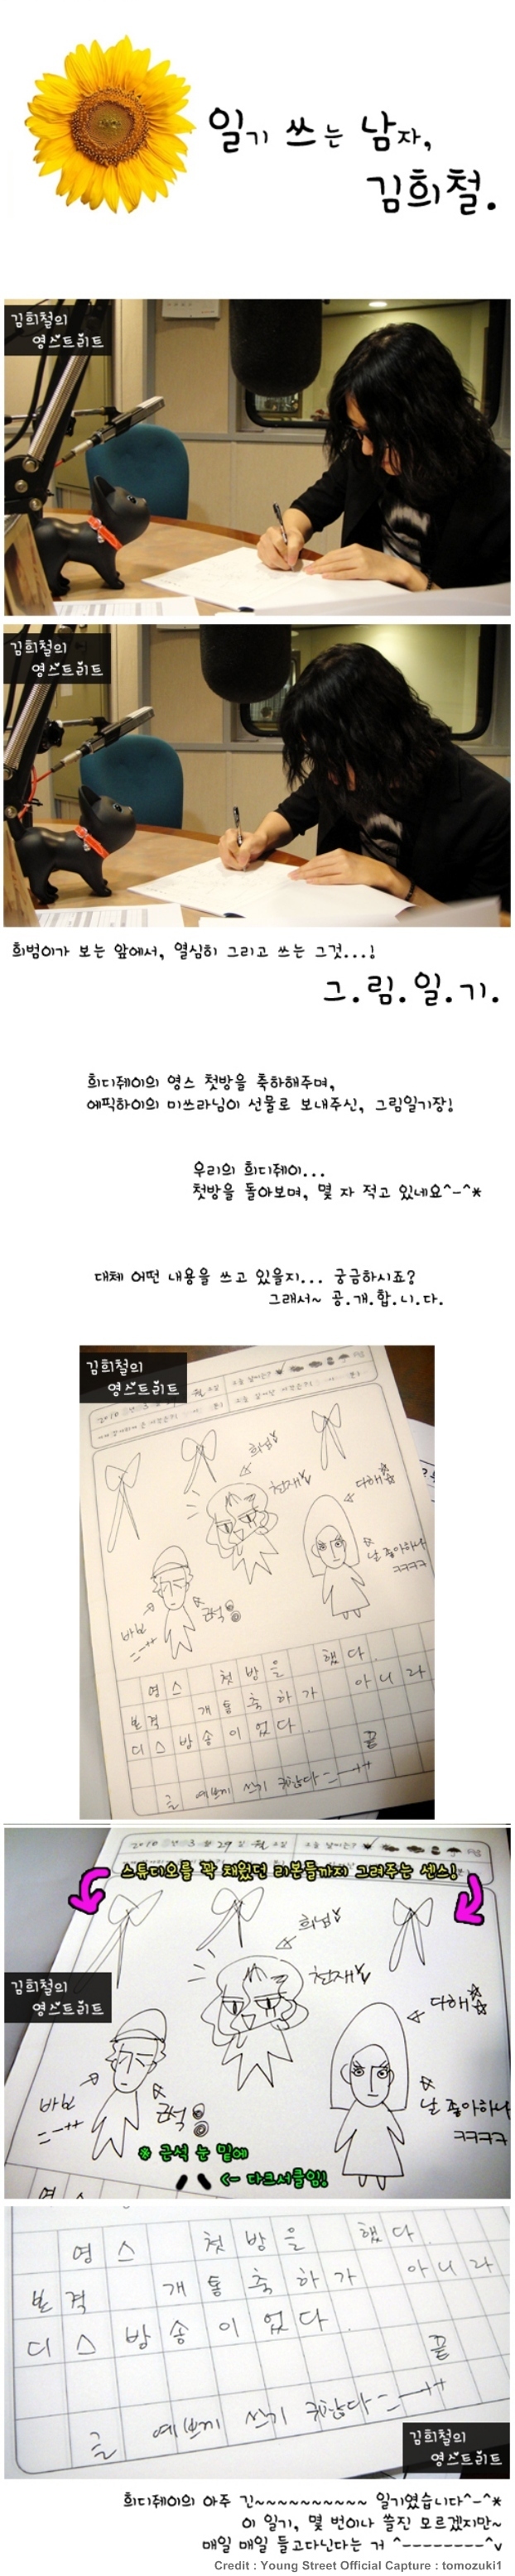 일기 쓰는 남자,
김희철.
김희철의
영스트리트
김희철의
영스트리트
희범이가 보는 앞에서, 열심히 그리고 쓰는 그것...!
그.림.일.기.
희디줴이의 영스 첫방을 축하해주며,
에픽하이의 미쓰라님이 선물로 보내주신, 그림일기장!
우리의 희디줴이...
첫방을 돌아보며, 몇 자 적고 있네요^-^*
대체 어떤 내용을 쓰고 있을지... 궁금하시죠?
그래서~ 공.개.합.니.다.
김희철의
영스트리트
희님
천재
다해
날 좋아하나
ㅋㅋㅋㅋ
바보
근석
영스 첫방을 했다.
본격 개통축하가 아니라
디스방송이었다.
끝
글 예쁘게 쓰기 귀찮다
2010년 3월 29일 월요일
스튜디오를 꽉 채웠던 리본들까지 그려주는 센스!
김희철의
영스트리트
희님
천재
다해
날 좋아하나
ㅋㅋㅋㅋ
바보
근석
* 근석 눈 밑에
<- 다크서클임!
영스 첫방을 했다.
본격 개통축하가 아니라
디스방송이었다.
끝
글 예쁘게 쓰기 귀찮다
김희철의
영스트리트
희디줴이의 아주 긴~~~~~~~~~~ 일기였습니다^-^*
이 일기, 몇 번이나 쓸진 모르겠지만~
매일 매일 들고다닌다는 거 ^--------^v
Credit : Young Street Official Capture : tomozuki1